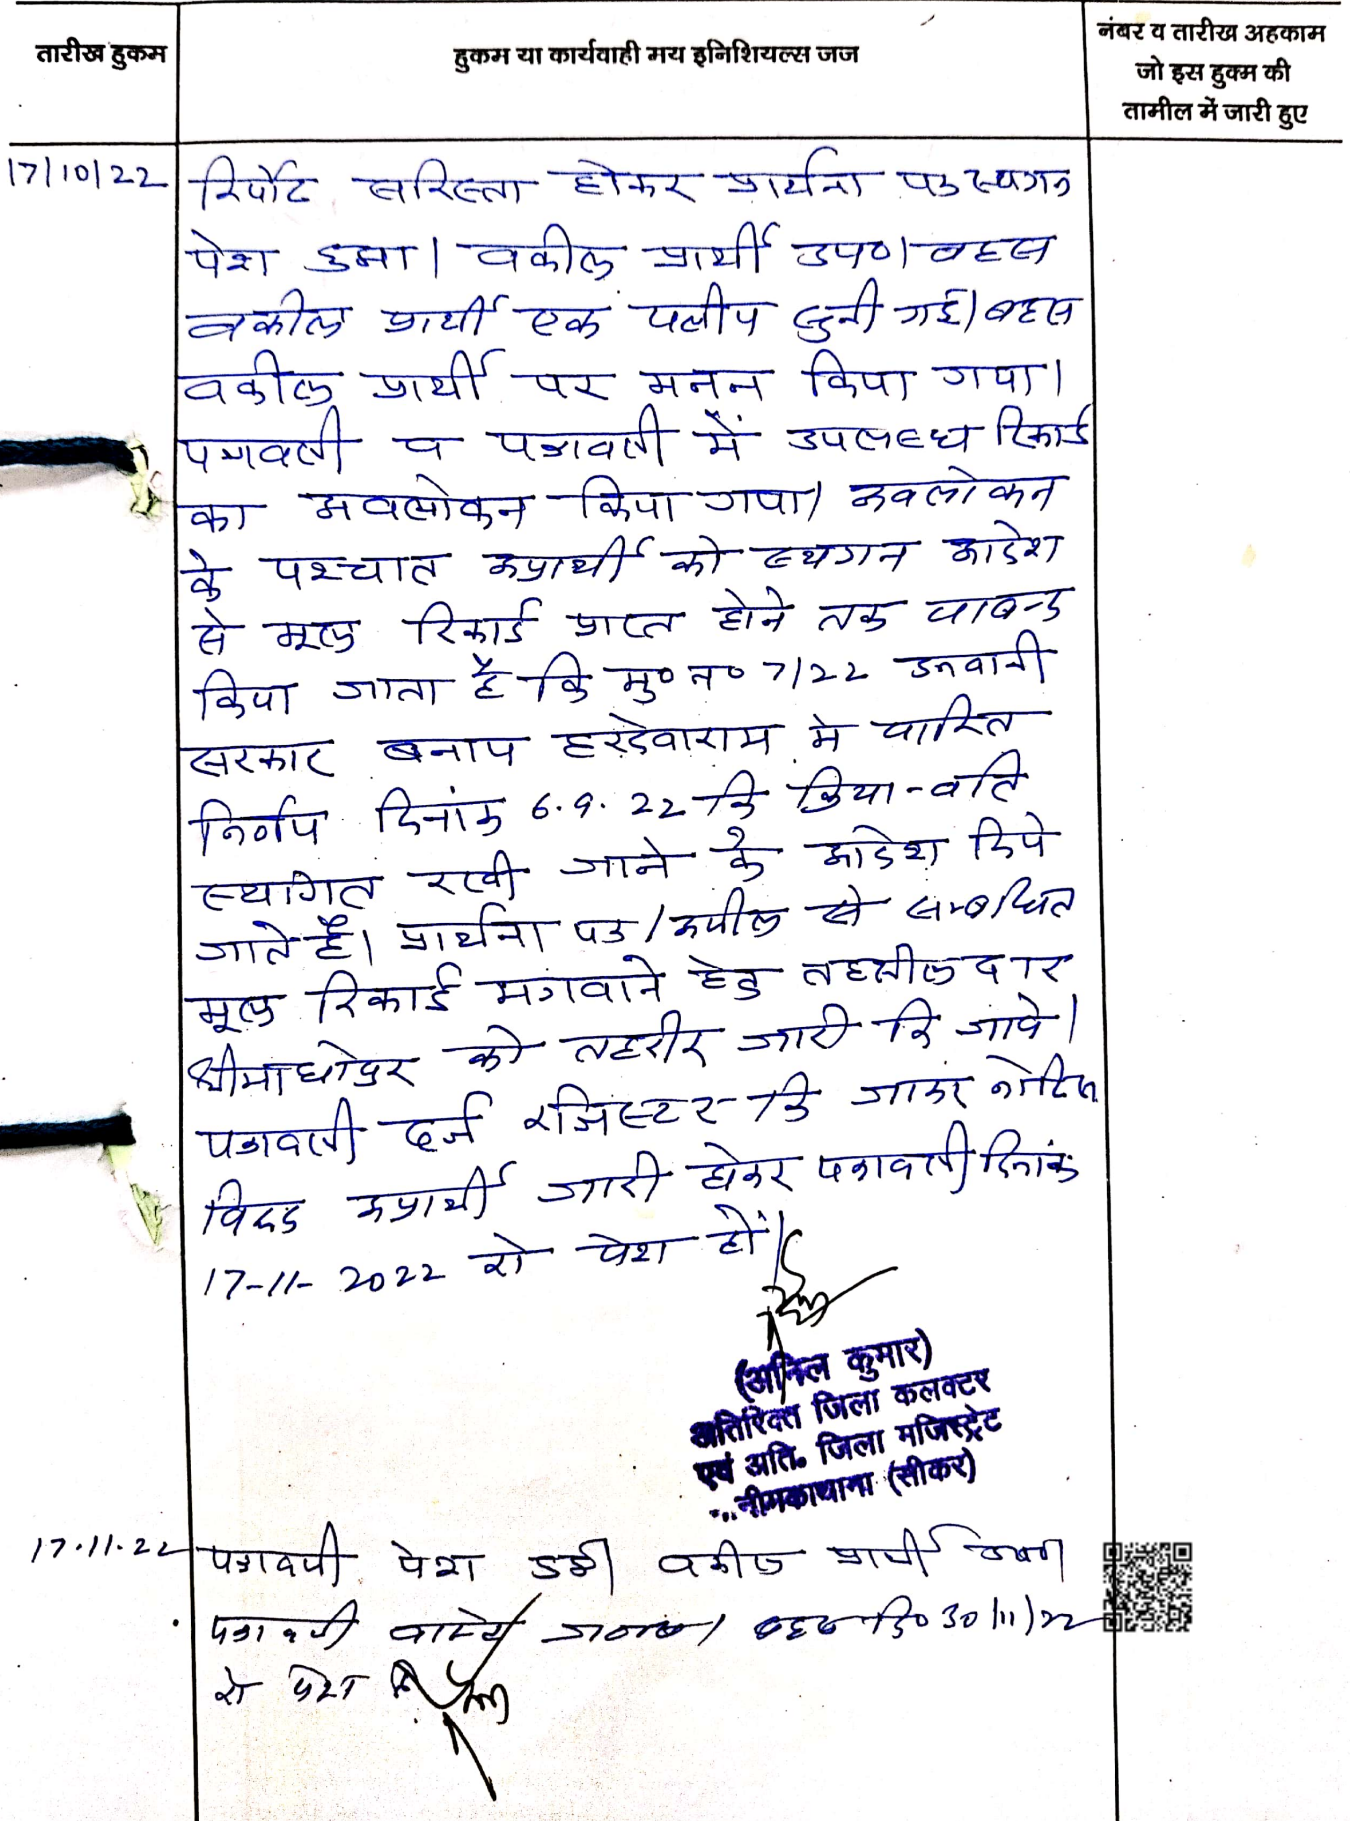 तारीख हुकम
हुकम या कार्यवाही मय इनिशियल्स जज
नंबर व तारीख अहकाम
जो इस हुक्म की
तामील में जारी हुए
17/10/22
रिर्पोट सरिस्ता होकर प्रार्थना पत्र स्थगन
पेश हुआ। वकील प्रार्थी उप०। बहस
वकील प्रार्थी एक पक्षीय सुनी गई। बहस
वकील प्रार्थी पर मनन किया गया।
पत्रावली व पत्रावली में उपलब्ध रिकार्ड
का अवलोकन किया गया। अवलोकन
के पश्चात अप्रार्थी को स्थगन आदेश
से मूल रिकार्ड प्राप्त होने तक पाबन्द
किया जाता है कि मु० न० 7/22 उनवानी
सरकार बनाम हरदेवाराम मे पारित
निर्णय दिनांक 6.9.22 कि क्रियान्वति
स्थगित रखी जाने के आदेश दिये
जाते हैं। प्रार्थना पत्र/अपील से सम्बन्धित
मूल रिकार्ड मगवाने हेतु तहसीलदार
श्रीमाधोपुर को तहरीर जारी कि जावे।
पत्रावली दर्ज रजिस्टर कि जाकर नोटिस
विरूद्ध अप्रार्थी जारी होकर पत्रावली दिनांक
17-11-2022 को पेश हों।
(अनिल कुमार)
अतिरिक्त जिला कलक्टर
एवं अति. जिला मजिस्ट्रेट
नीमकाथाना (सीकर)
17.11.22
पत्रावली पेश हुई। वकील प्रार्थी
पत्रावली वास्ते बहस दि० 30/11/22
को पेश